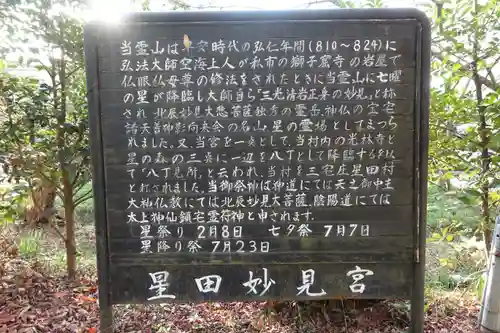 当霊山は平安時代の弘仁年間(810〜824)に
弘法大師空海上人が私市の獅子窟寺の岩屋で
仏眼仏母尊の修法をされたときに当霊山に七曜
の星が降臨し大師自ら「三光清岩正身の妙見」と称
され北辰妙見大悲菩薩独秀の霊岳、神仏の宝宅
諸天善神影向来会の名山、星の霊場としてまつら
れました。又、当宮を一矢として、当村内の光林寺と
星の森の三ヶ一辺を八丁として降臨するを以
て"八丁見所"と云われ、当村を三宅庄星田村
とれました。当御祭神は神道にては天之御中主
大神仏教にては北辰妙見大菩薩、陰陽道にては
太上神仙鎮宅霊符神と申されます。
星祭り 2月8日 七夕祭 7月7日
星降り祭 7月23日
星田妙見宮